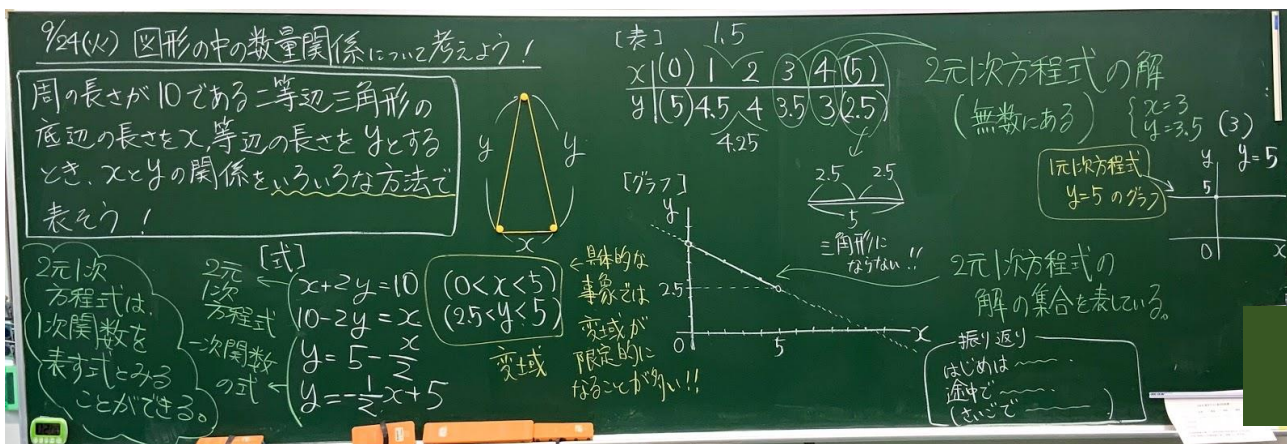 9/24(火) 図形の中の数量関係について考えよう!
周の長さが10である二等辺三角形の
底辺の長さをx,等辺の長さをyとする
とき、xとyの関係をいろいろな方法で
表そう!
y
y
x
2元1次
方程式は、
1次関数を
表す式とみる
ことができる。
[式]
2元
1次
方程式
一次関数
の式
x+2y=10
10-2y=x
y=5-x/2
y=-1/2x+5
(0<x<5)
(2.5<y<5)
変域
←具体的な
事象では
変域が
限定的に
なることが多い!!
[表]
1.5
x|(0) 1 2 3 4 (5)
y|(5) 4.5 4 3.5 3 (2.5)
4.25
2.5 2.5
5
三角形に
ならない!!
[グラフ]
y
2.5
0
5
x
2元1次方程式の解
(無数にある)
{x=3
y=3.5
(3)
1元1次方程式
y=5のグラフ
y
y=5
5
0
x
2元1次方程式の
解の集合を表している。
振り返り
はじめは
途中で
(さいごで )